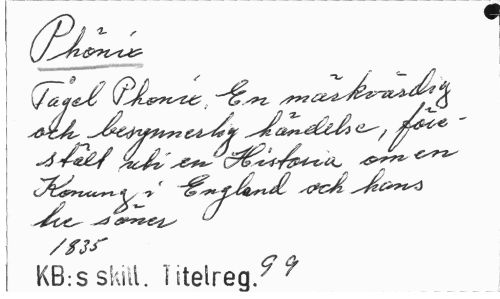 Phönix
Tågel Phenix. En märkvärdig
och besynnerlig händelse, före-
stält uti en Historia om en
Konung i England och hans
tre söner
1835
KB:s skill. Titelreg. 99